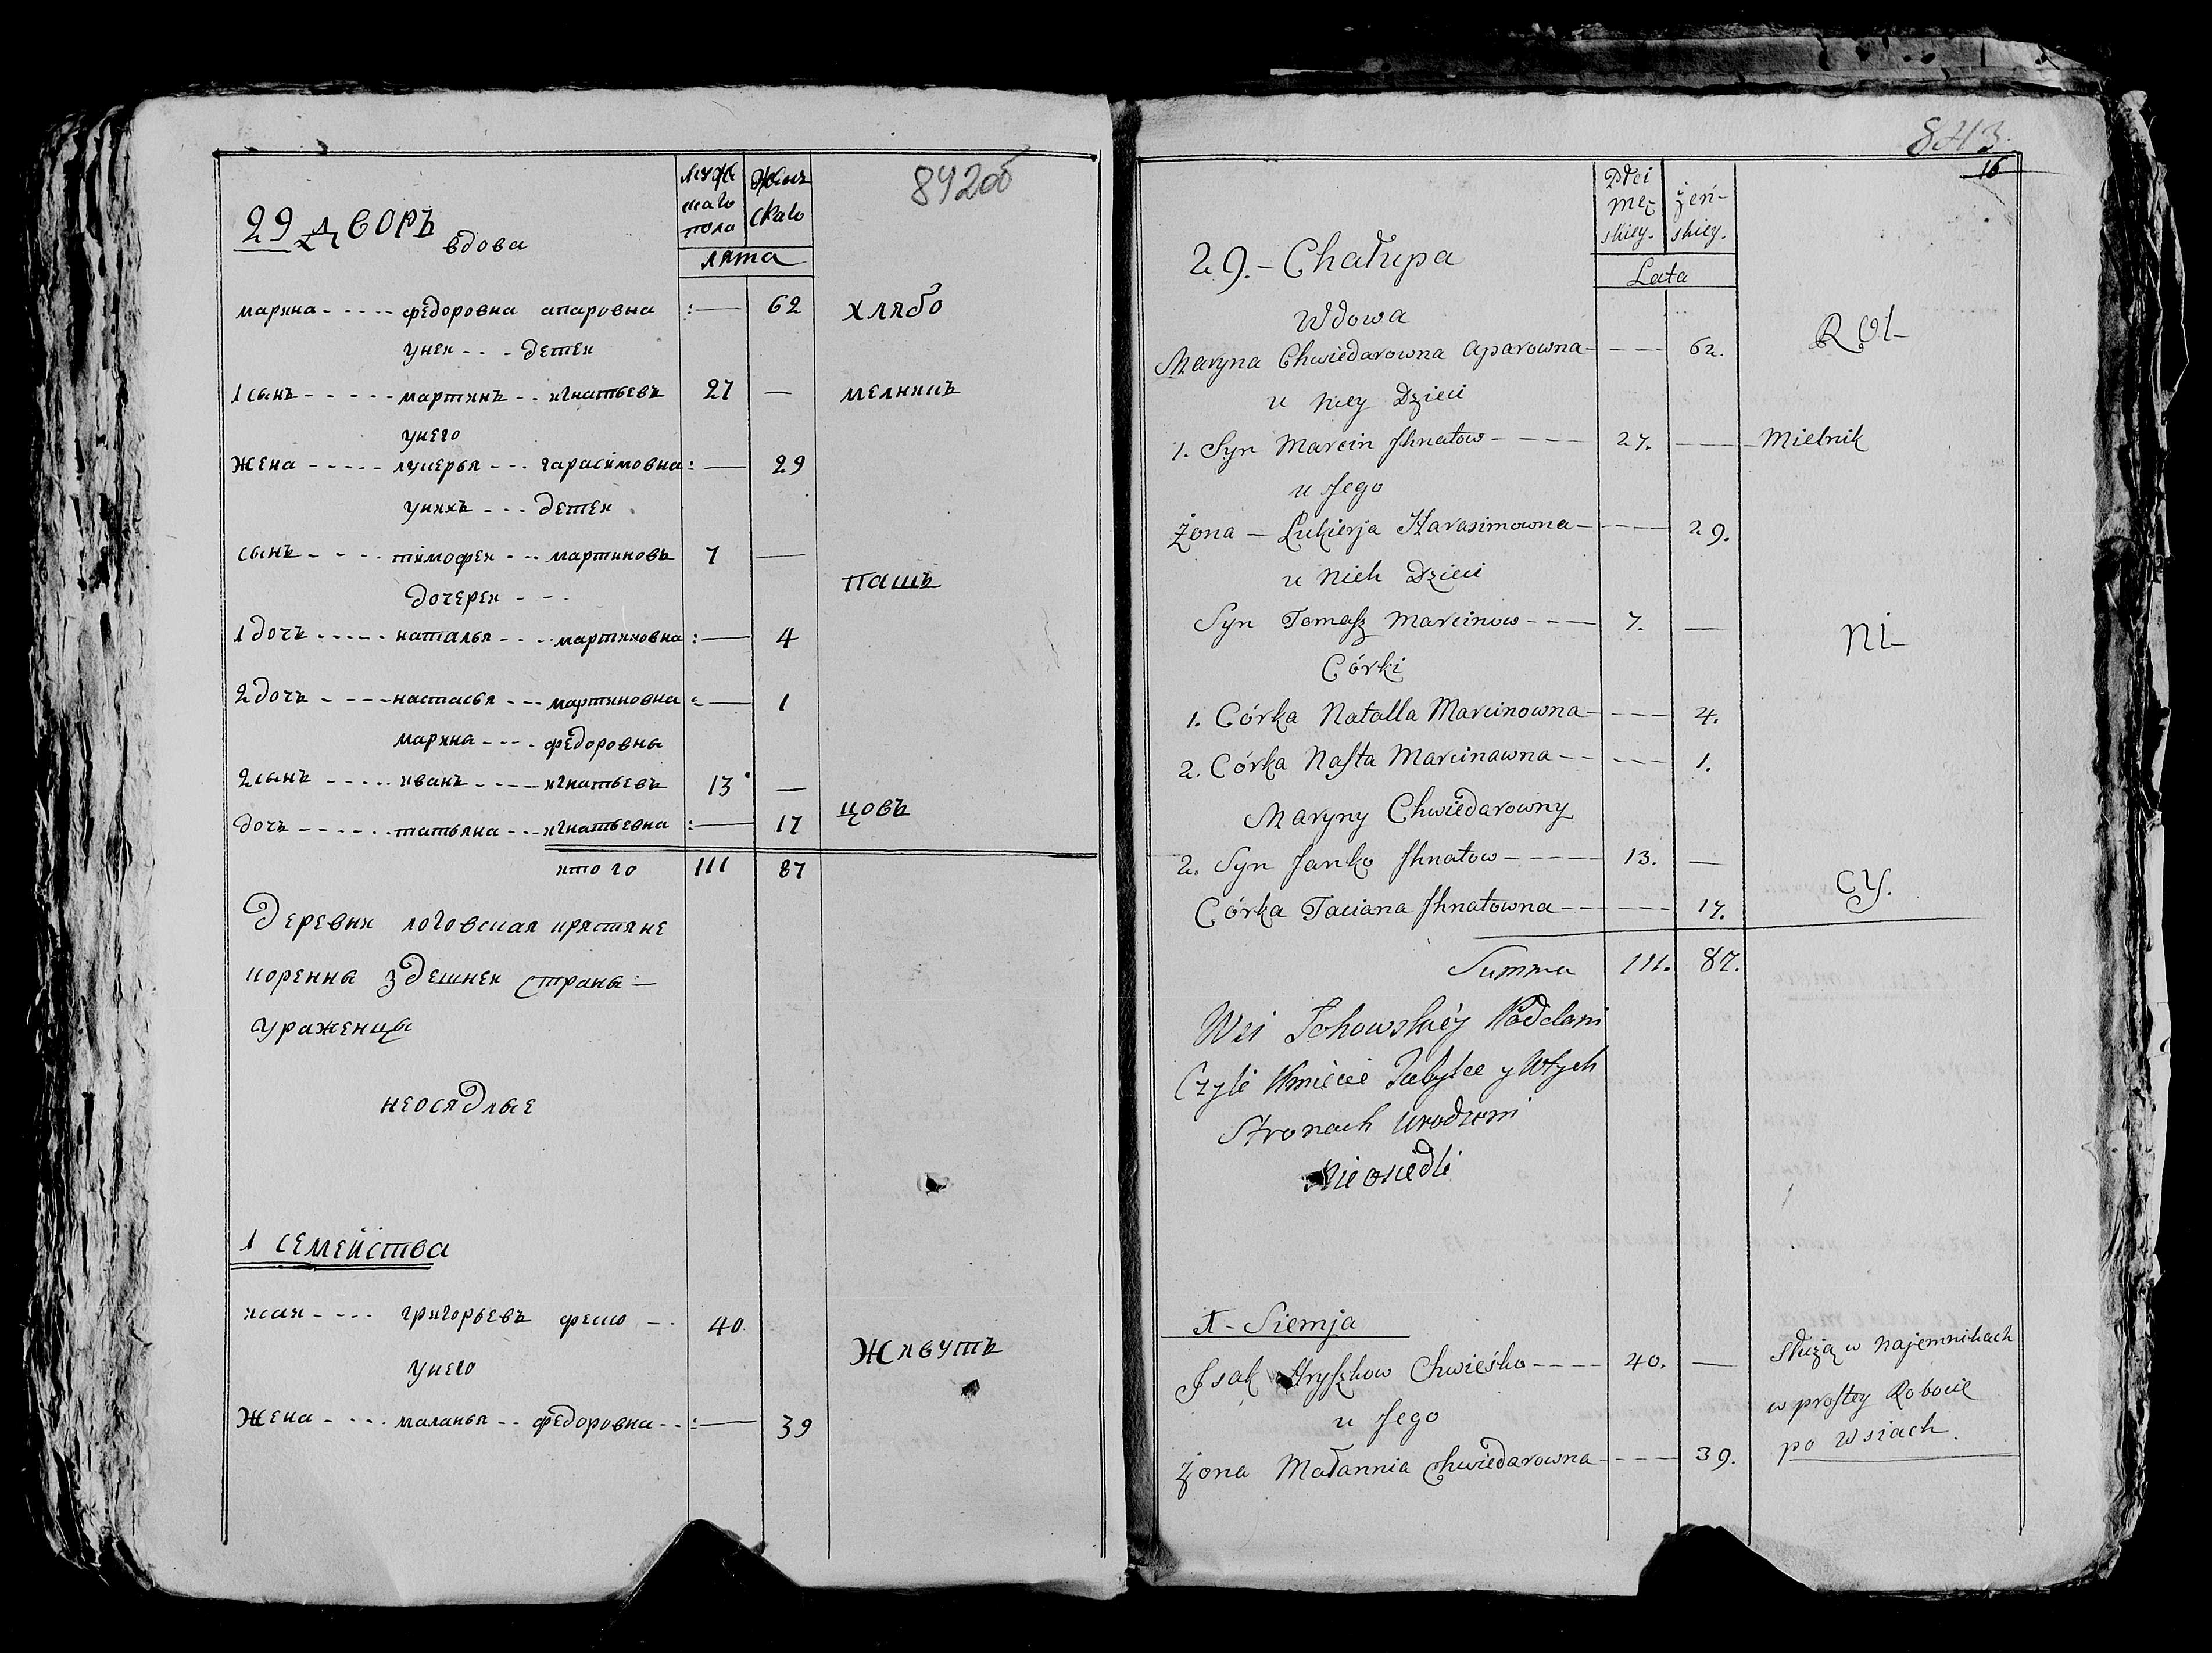 842об
мужскаго пола
Женскаго
лята
29 дворъ
вдова
марина - - - - - федоровна апаровна :— 62 хлябо
унея - - - детеи
1 сынъ - - - - - мартинъ - - игнатьевъ 27 — мелникъ
унего
жена - - - - - лукерья - - - гарасимовна :— 29
унихъ - - - детеи
сынъ - - - - тимофеи - - - мартиновъ 7 —
пашъ
дочереи - - -
1 дочъ - - - - - наталья - - - - мартиновна :— 4
2 дочъ - - - - настасья - - - мартиновна :— 1
марина - - - - федоровны
2 сынъ - - - - - иванъ - - - - - игнатьевъ 13 —
цовъ
дочъ - - - - - - татьяна - - - игнатьевна :— 17
итого 111 87
Деревни логовская крястяне
коренны здешнеи страны —
ураженцы
неосядлые
1 семейства
исаи - - - - григорьевъ феско - - 40
унего
Живутъ
жена - - - - маланья - - федоровна - - :— 39
843
16
Płci męzskiey.
żeńskiey.
Lata
29. - Chałupa
Wdowa
Rol-
Maryna Chwiedarowna Aparowna - - - 62.
u niey Dzieci
1. Syn Marcin Jhnatow - - - - 27. — Mielnik
u Jego
Żona — Łukierja Harasimowna - - - - 29.
u nich Dzieci
Syn Tomasz Marcinow - - - 7. —
ni-
Córki
1. Córka Natalla Marcinowna - - - 4.
2. Córka Nasta Marcinawna - - - - - 1.
Maryny Chwiedarowny
2. Syn Janko Jhnatow - - - - - 13. —
cy.
Córka Taciana Jhnatowna - - - - - 17.
Summa 111. 87.
Wsi Łohowskiéy Poddani
Czyli Kmiécie Tubylce y wtych
Stronach Urodzoni
Nieosiedli
1 - Siemja
Jsak Hryszkow Chwieśko - - - - 40. — Służą w najemnikach
w prostey Robocie
u Jego
po wsiach.
Żona Małannia Chwiedarowna - - - - 39.